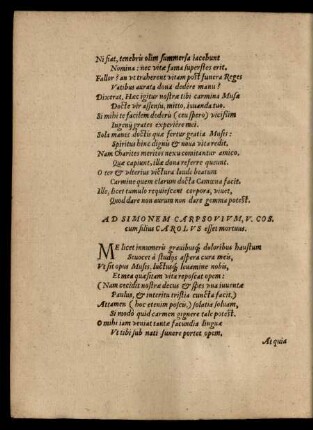 Ni fiat, tenebris olim summersa iacebunt
Nomina: nec vitæ fama superstes erit.
Fallor? an vt traherent vitam post funera Reges
Vatibus aurata dona dedere manu?
Dixerat. Hæc igitur nostræ tibi carmina Musæ
Docte vir assensu, mitto, iuuanda tuo.
Si mihi te facilem dederis (ceu spero) vicissim
Ingenij grates experiere mei.
Sola manet doctis quæ fertur gratia Musis:
Spiritus hinc dignis & noua vita redit.
Nam Charites meritos nexu comitantur amico,
Quæ capiunt, illæ dona referre queunt.
O ter & vlterius vectura laude beatum
Carmine quem clarum docta Camœna facit.
Ille, licet tumulo requiescant corpora, viuet,
Quod dare non aurum non dare gemma potest.
AD SIMONEM CARPSOVIUM, V. COS.
cum filius CAROLVS esset mortuus.
ME licet innumeris grauibusq; doloribus haustum
Seuocet à studijs aspera cura meis,
Vt sit opus Musis, luctusq; leuamine nobis,
Et meta quæsitam vita reposcat opem:
(Nam cecidit nostræ decus & spes vna iuuentæ
Paulus, & interitu tristia cuncta facit.)
Attamen (hoc etenim poscis) solatia soluam,
Si modò quid carmen gignere tale potest.
O mihi iam veniat tantæ facundia linguæ
Vt tibi sub nati funere portet opem,
At quia